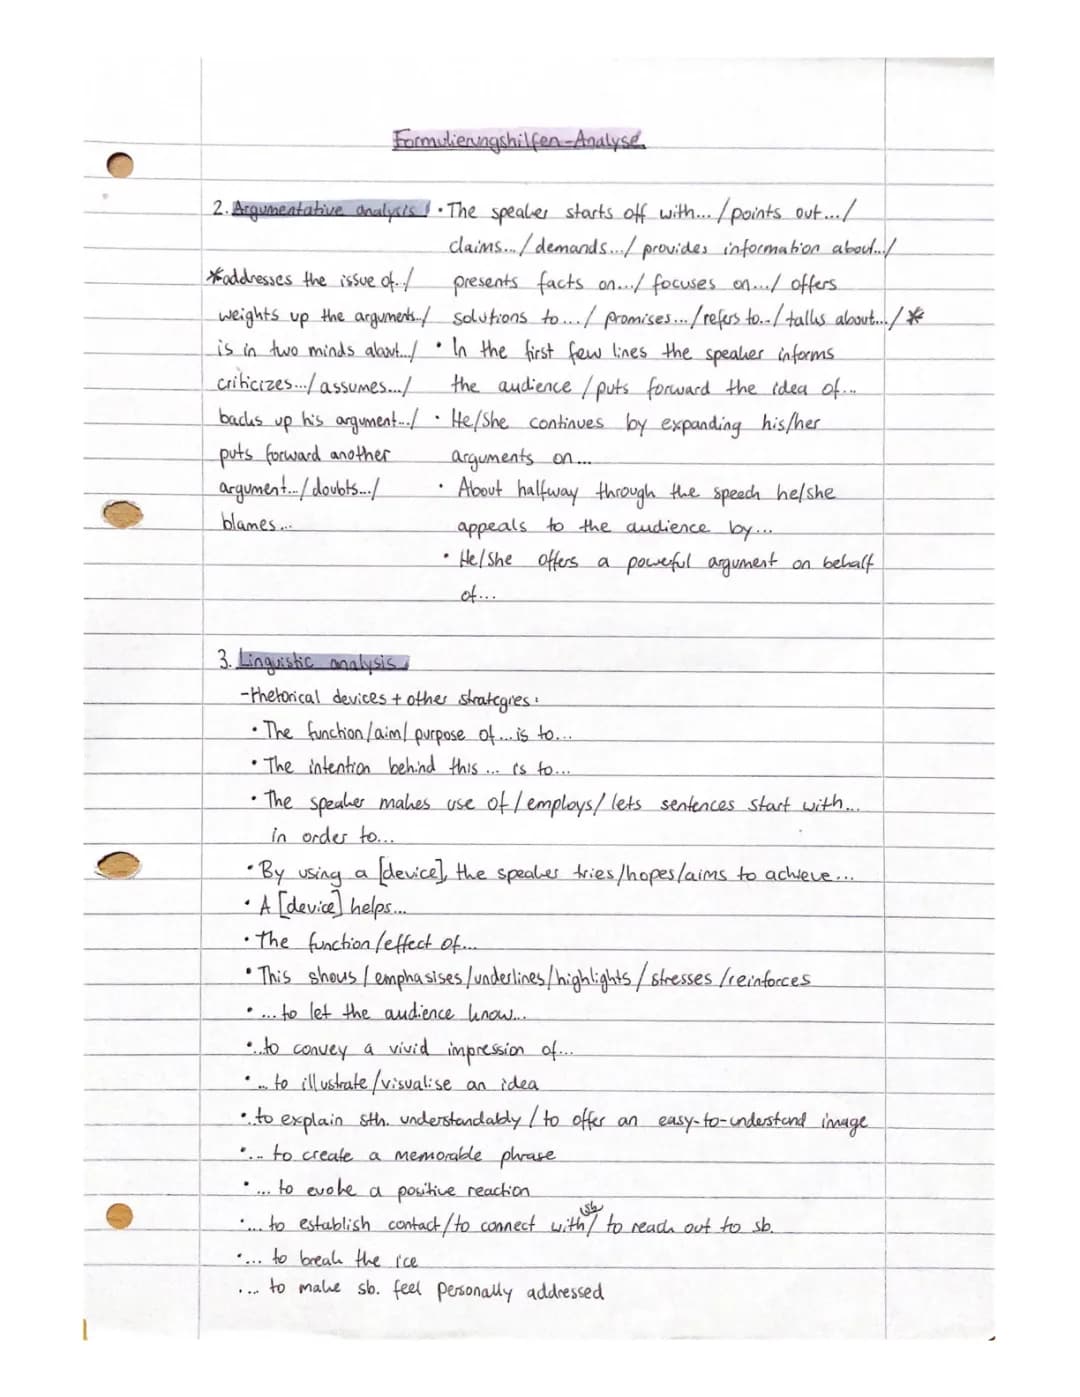 Formulierungshilfen-Analyse
2. Argumentative analysis • The speaker starts off with... / points out.../
claims... / demands.../ provides information about../
*addresses the issue of../
presents facts on.../ focuses on.../ offers
weights up the arguments../
solutions to.../ promises.../refers to../ talks about.../ *
is in two minds about.../
• In the first few lines the speaker informs
criticizes.../ assumes.../
the audience / puts forward the idea of...
backs up his argument.../
• He/She continues by expanding his/her
puts forward another
arguments on...
argument.../ doubts.../
• About halfway through the speech he/she
blames...
appeals to the audience by...
• He/She offers a powerful argument on behalf
of...
3. Linguistic analysis
-rhetorical devices + other strategies:
• The function/aim/ purpose of...is to...
• The intention behind this ... is to...
• The speaker makes use of / employs/ lets sentences start with...
in order to...
• By using a [device], the speaker tries/hopes/aims to achieve...
• A [device] helps...
• The function/effect of...
• This shows / emphasises/underlines/highlights / stresses /reinforces
• ... to let the audience know...
•..to convey a vivid impression of...
• .. to illustrate/visualise an idea
•.to explain sth. understandably / to offer an easy-to-understand image
•... to create a memorable phrase
• ... to evoke a positive reaction
•... to establish contact/to connect with sb/ to reach out to sb.
•... to break the ice
.... to make sb. feel personally addressed